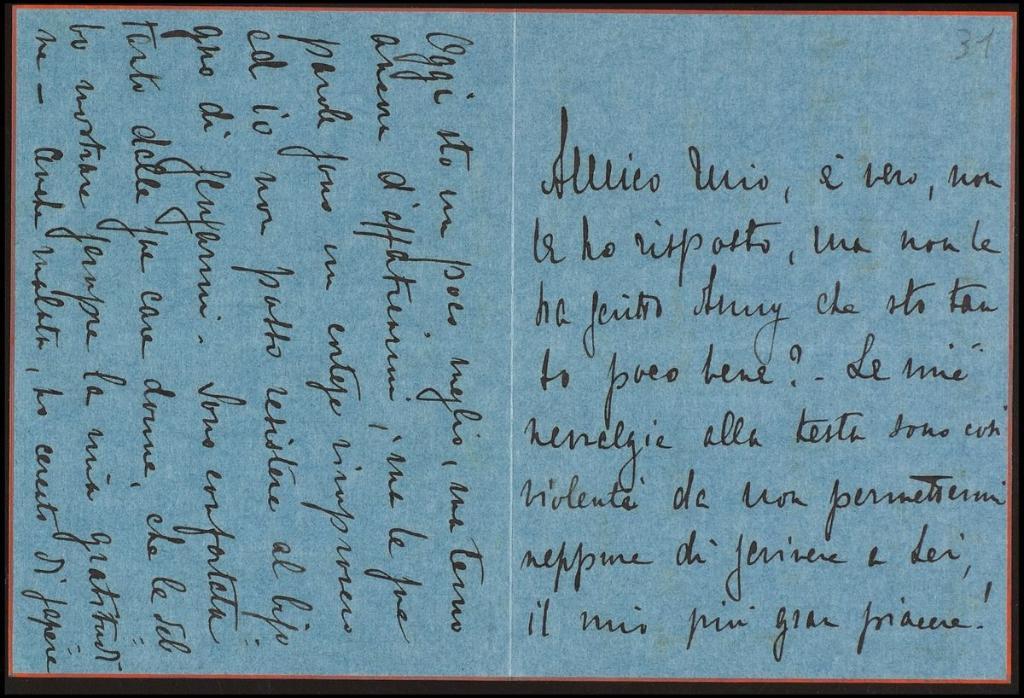 31
Amico mio, è vero, non
le ho risposto, ma non le
ha scritto Anny che sto tan
to poco bene? - Le mie
nevralgie alla testa sono così
violenti da non permettermi
neppure di scrivere a Lei,
il mio più gran piacere!
Oggi sto un poco meglio, ma temo
ancora d'affaticarmi, ma le sue
parole sono un cortese rimprovero
ed io non posso resistere al biso
gno di scusarmi - Sono confortata
tanto dalle sue care donne, che le deb
bo mostrare sempre la mia gratitudi
ne - Anche malata, ho cercato di sapere